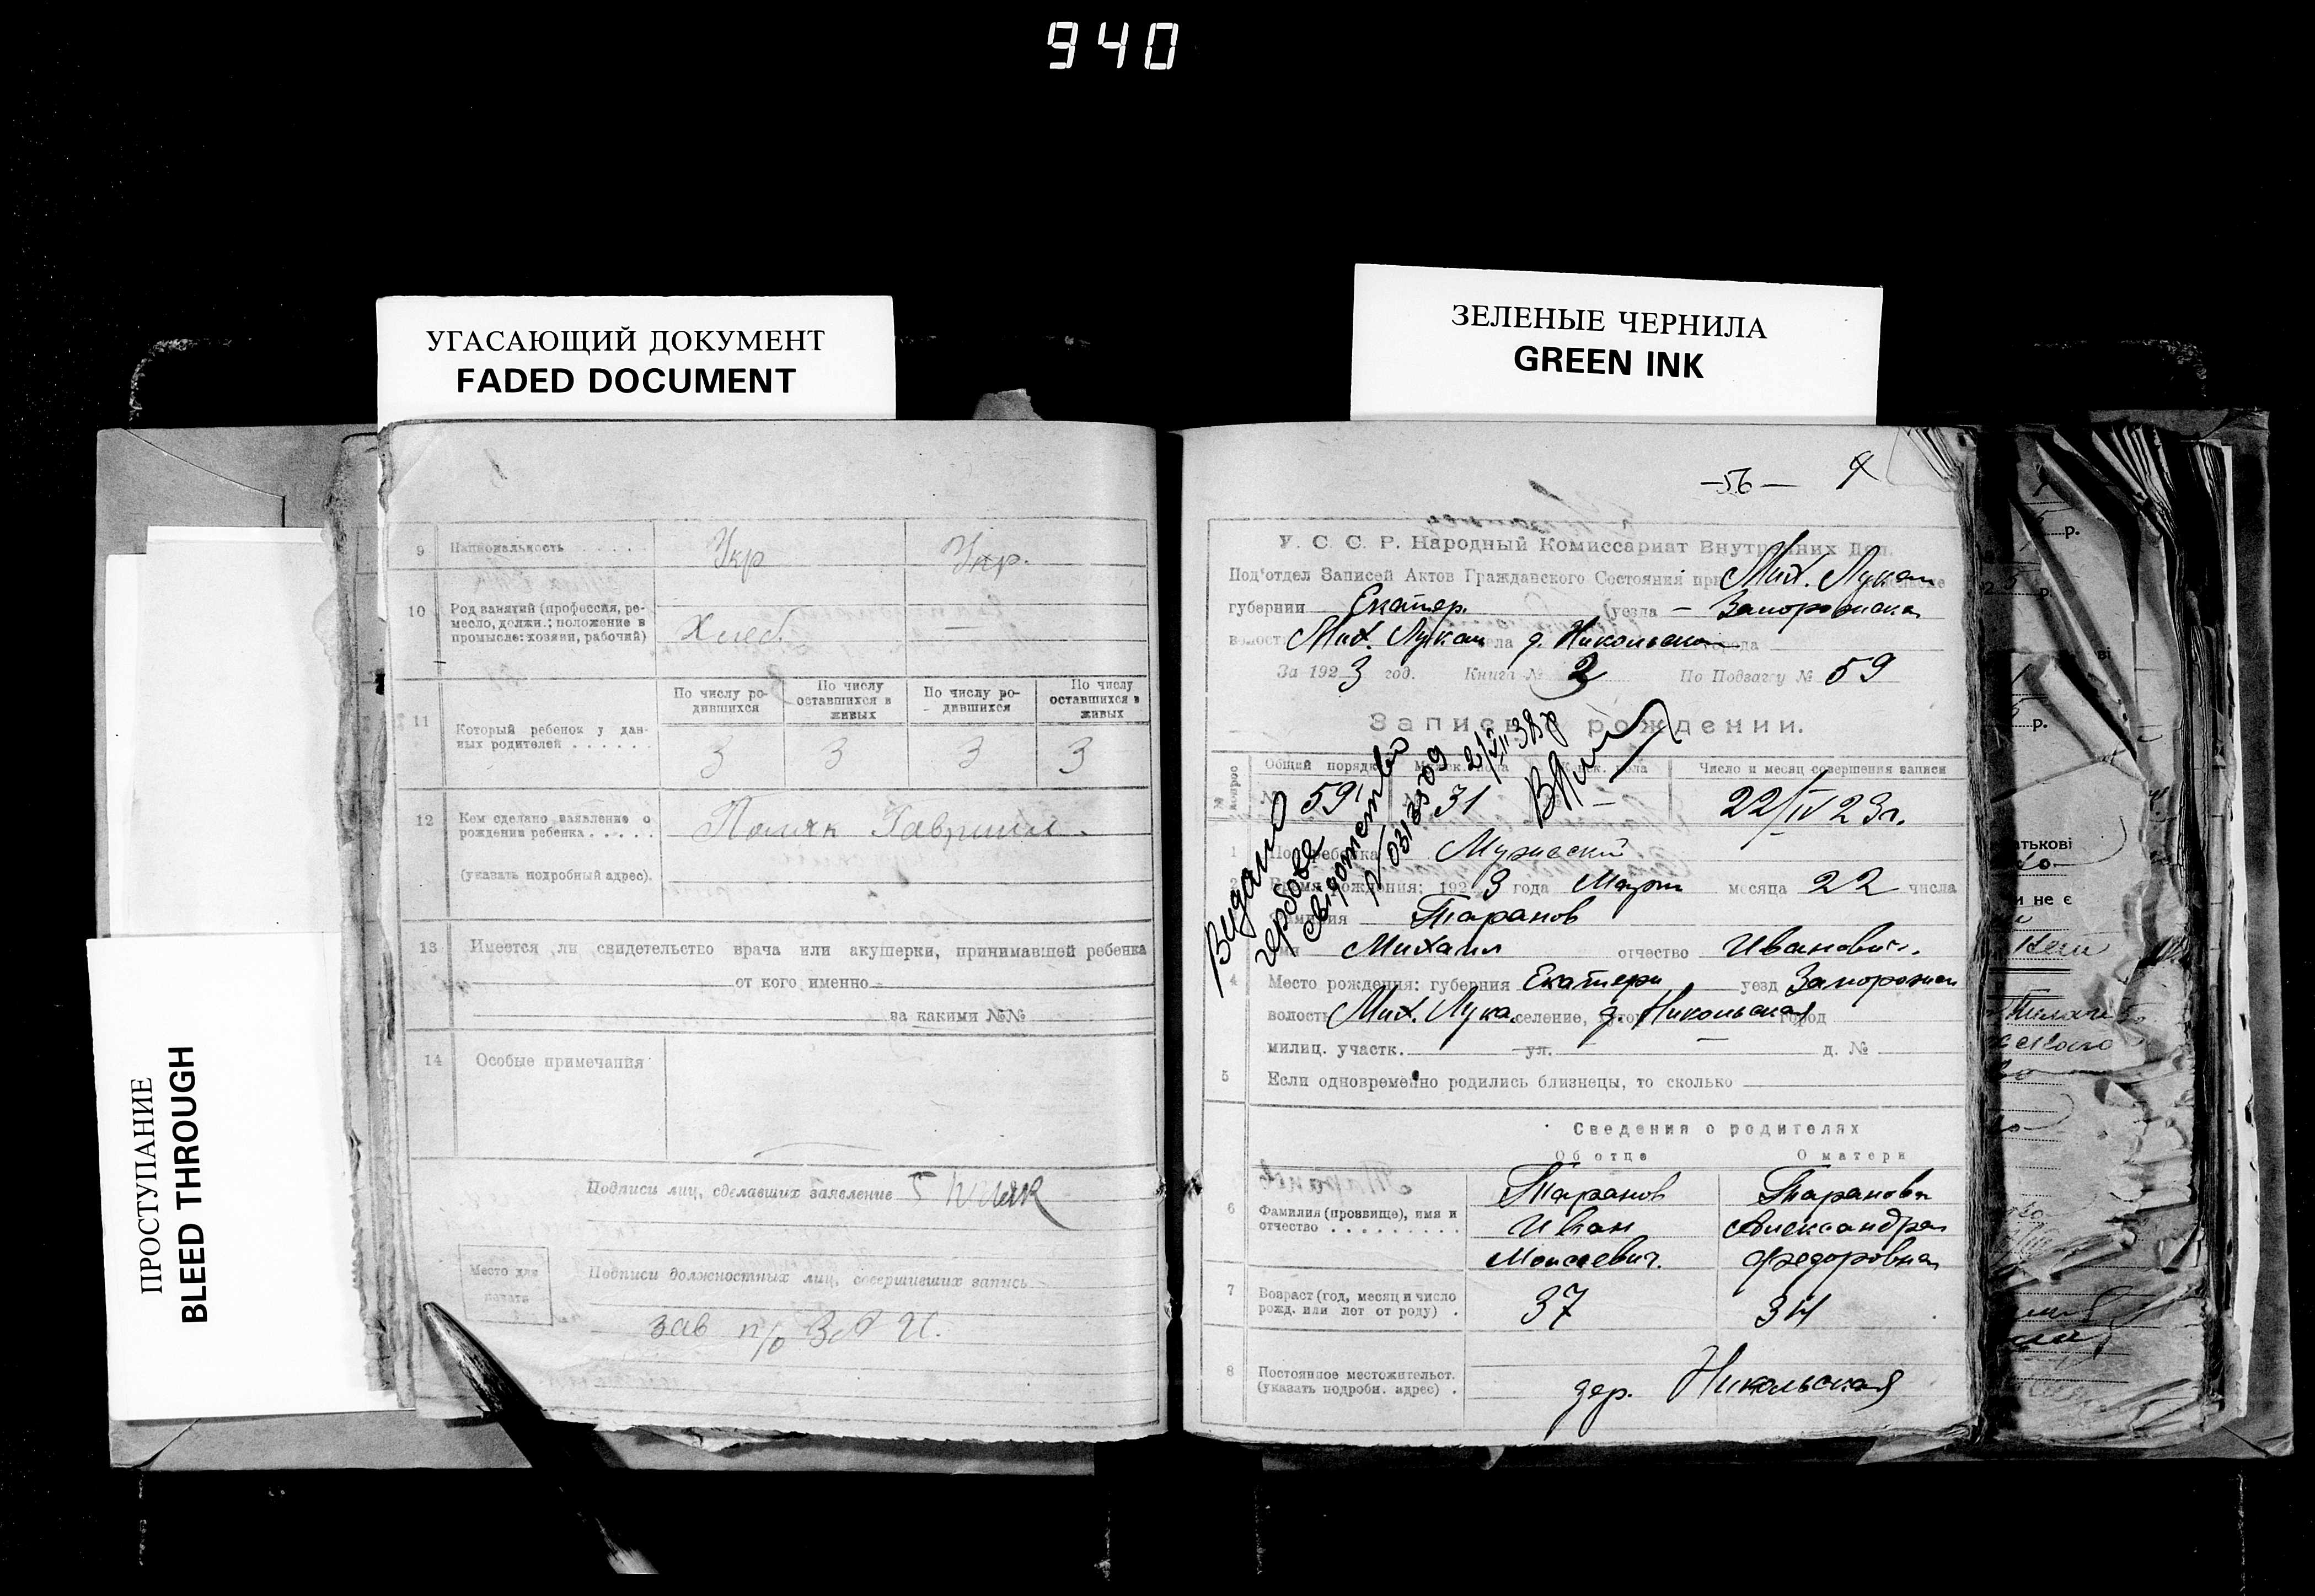 940
УГАСАЮЩИЙ ДОКУМЕНТ
FADED DOCUMENT
ЗЕЛЕНЫЕ ЧЕРНИЛА
GREEN INK
ПРОСТУПАНИЕ
BLEED THROUGH
9 Национальность Укр Укр.
10 Род занятий (профессия, ре-
месло, должн.; положение в
промысле: хозяин, рабочий) Хлеб.
По числу ро- По числу По числу ро- По числу
дившихся оставшихся в дившихся оставшихся в
живых живых
11 Который ребенок у дан-
ных родителей 3 3 3 3
12 Кем сделано заявление о
рождении ребенка Гавриил
(указать подробный адрес).
13 Имеется ли свидетельство врача или акушерки, принимавшей ребенка
от кого именно
за какими №№
14 Особые примечания
Подписи лиц, сделавших заявление
Место для
печати
Подписи должностных лиц, совершивших запись
зав п/о ЗАГС.
—56—
У. С. С. Р. Народный Комиссариат Внутренних Дел.
Под'отдел Записей Актов Гражданского Состояния при Мих. Лукаш
губернии Екатер. уезда — Запорожска
волости Мих. Лукаш села д. Никольска города
За 1923 год. Книга № 2 По Подзагсу № 59
Запись о рождении.
Общий порядк. Мужск. пола Женск. пола Число и месяц совершения записи
№ 59 31 — 22/IV 23г.
Видано
чербове
свідоцтво
21/VII 38р
1 Пол ребенка Мужеский
2 Время рождения: 1923 года Марта месяца 22 числа
Фамилия Таранов
имя Михаил отчество Иванович.
4 Место рождения: губерния Екатери уезд Запорожск
волость Мих. Лука. селение, хутор д. Никольская город
милиц. участк. ул. д. №
5 Если одновременно родились близнецы, то сколько
Сведения о родителях
Об отце О матери
6 Фамилия (прозвище), имя и
отчество
Таранов Таранова
Иван Александра
Моисеевич. Федоровна
7 Возраст (год, месяц и число
рожд. или лет от роду) 37 34
8 Постоянное местожительст.
(указать подробн. адрес) дер. Никольская